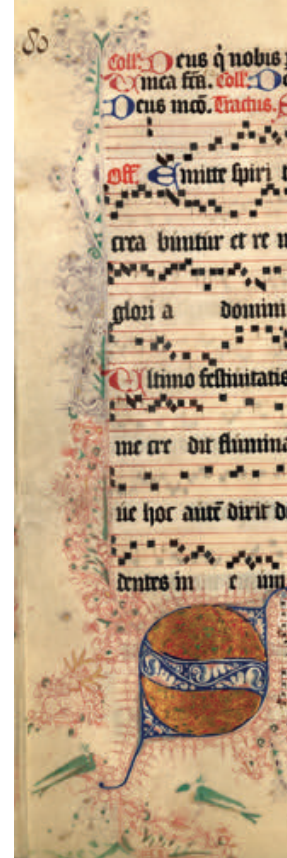 80
Coll. Deus q̇ nobis
mea frīs. Coll. De
Deus mcō. Tractus.
Off. Emitte spiri
crea buntur et re n
glori a domini
Ultimo festiuitatis
me cre dit flumina
ue hoc autē dixit d
dentes in e um